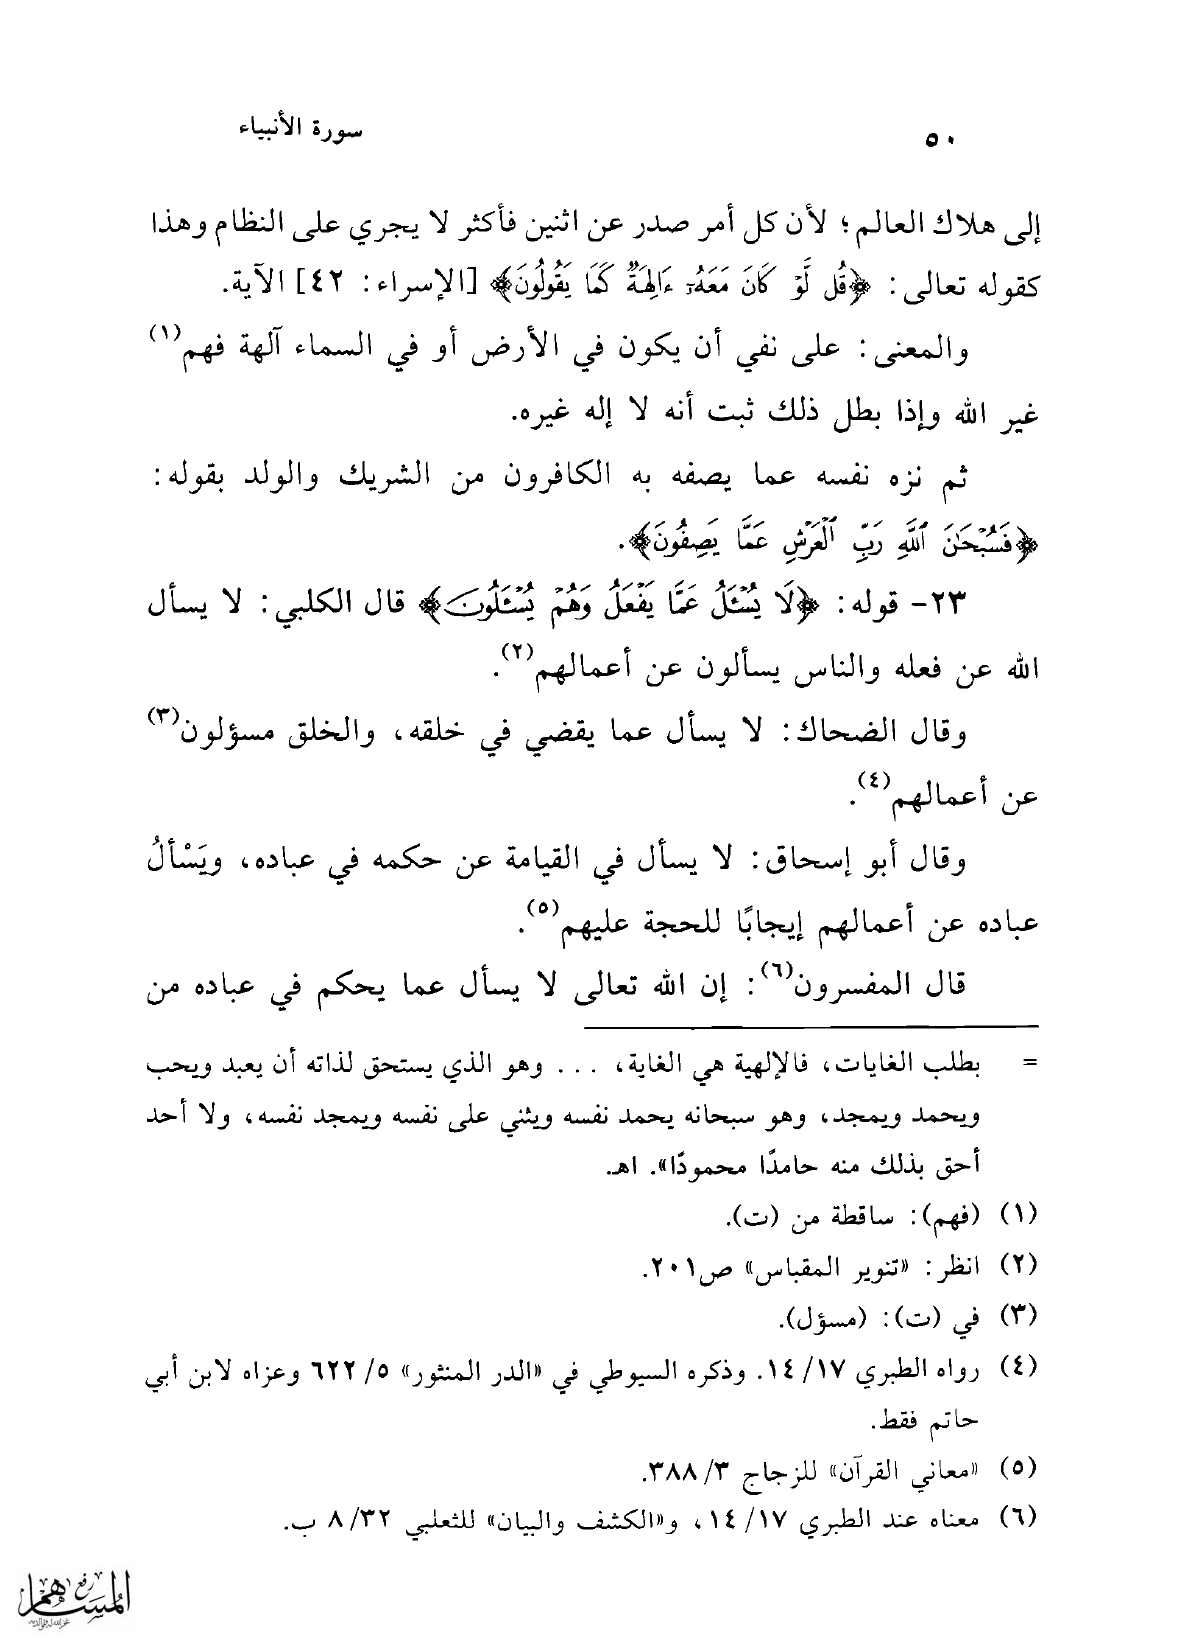 ٥٠
سورة الأنبياء
إلى هلاك العالم؛ لأن كل أمر صدر عن اثنين فأكثر لا يجري على النظام وهذا
كقوله تعالى: ﴿قُل لَّوْ كَانَ مَعَهُۥٓ ءَالِهَةٌ كَمَا يَقُولُونَ﴾ [الإسراء: ٤٢] الآية.
والمعنى: على نفي أن يكون في الأرض أو في السماء آلهة فهم(١)
غير الله وإذا بطل ذلك ثبت أنه لا إله غيره.
ثم نزه نفسه عما يصفه به الكافرون من الشريك والولد بقوله:
﴿فَسُبْحَٰنَ ٱللَّهِ رَبِّ ٱلْعَرْشِ عَمَّا يَصِفُونَ﴾.
٢٣- قوله: ﴿لَا يُسْـَٔلُ عَمَّا يَفْعَلُ وَهُمْ يُسْـَٔلُونَ﴾ قال الكلبي: لا يسأل
الله عن فعله والناس يسألون عن أعمالهم(٢).
وقال الضحاك: لا يسأل عما يقضي في خلقه، والخلق مسؤلون(٣)
عن أعمالهم(٤).
وقال أبو إسحاق: لا يسأل في القيامة عن حكمه في عباده، ويَسْألُ
عباده عن أعمالهم إيجابًا للحجة عليهم(٥).
قال المفسرون(٦): إن الله تعالى لا يسأل عما يحكم في عباده من
= بطلب الغايات، فالإلهية هي الغاية، ... وهو الذي يستحق لذاته أن يعبد ويحب
ويحمد ويمجد، وهو سبحانه يحمد نفسه ويثني على نفسه ويمجد نفسه، ولا أحد
أحق بذلك منه حامدًا محمودًا». اهـ.
(١) (فهم): ساقطة من (ت).
(٢) انظر: «تنوير المقباس» ص٢٠١.
(٣) في (ت): (مسؤل).
(٤) رواه الطبري ١٧/ ١٤. وذكره السيوطي في «الدر المنثور» ٥/ ٦٢٢ وعزاه لابن أبي
حاتم فقط.
(٥) «معاني القرآن» للزجاج ٣/ ٣٨٨.
(٦) معناه عند الطبري ١٧/ ١٤، و«الكشف والبيان» للثعلبي ٣٢/ ٨ ب.